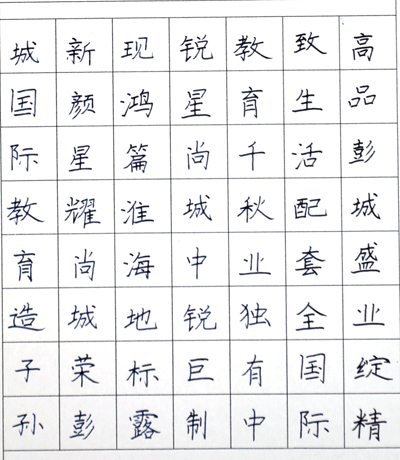 高品彭城盛业绽精
致生活配套全国际
教育千秋业独有中
锐星尚城中锐巨制
现鸿篇淮海地标露
新颜星耀尚城荣彭
城国际教育造子孙